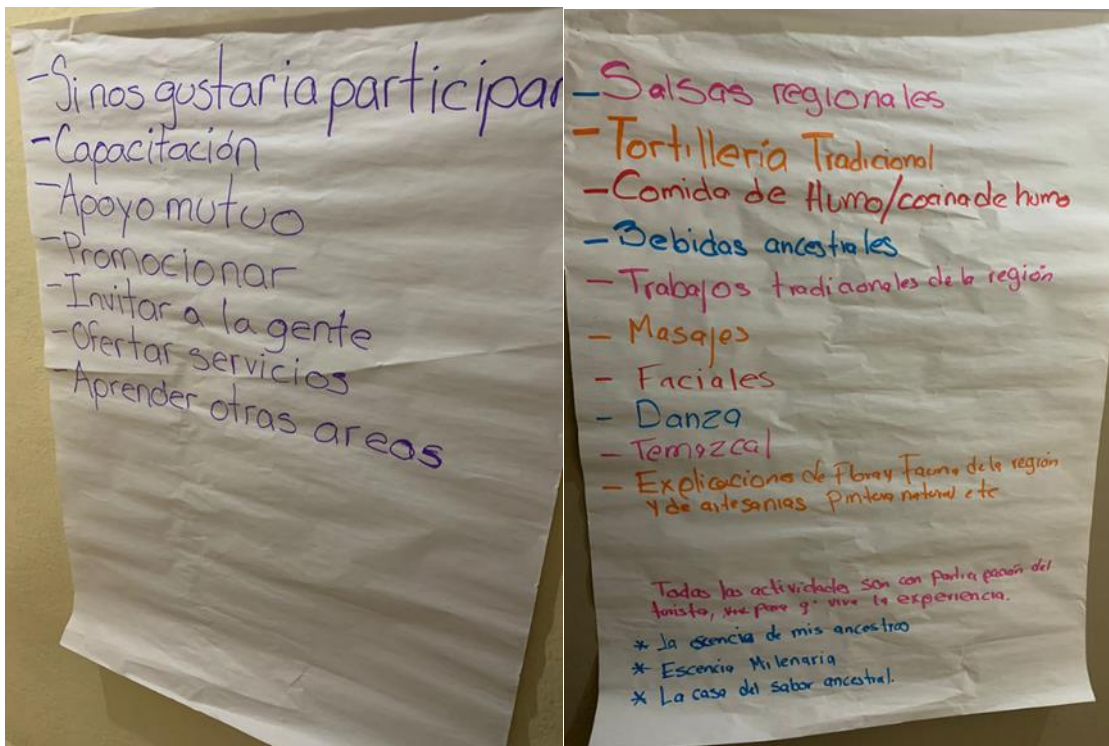 -Si nos gustaria participar
-Capacitación
-Apoyo mutuo
-Promocionar
-Invitar a la gente
-Ofertar servicios
-Aprender otras areas
-Salsas regionales
-Tortillería Tradicional
-Comida de Humo/cocina de humo
-Bebidas ancestrales
-Trabajos tradicionales de la región
- Masajes
- Faciales
- Danza
- Temazcal
- Explicaciones de Flora y Fauna de la región
y de artesanias pintura natural etc
Todas las actividades son con participación del
turista, para q' viva la experiencia.
* La esencia de mis ancestros
* Escencia Milenaria
* La casa del sabor ancestral.